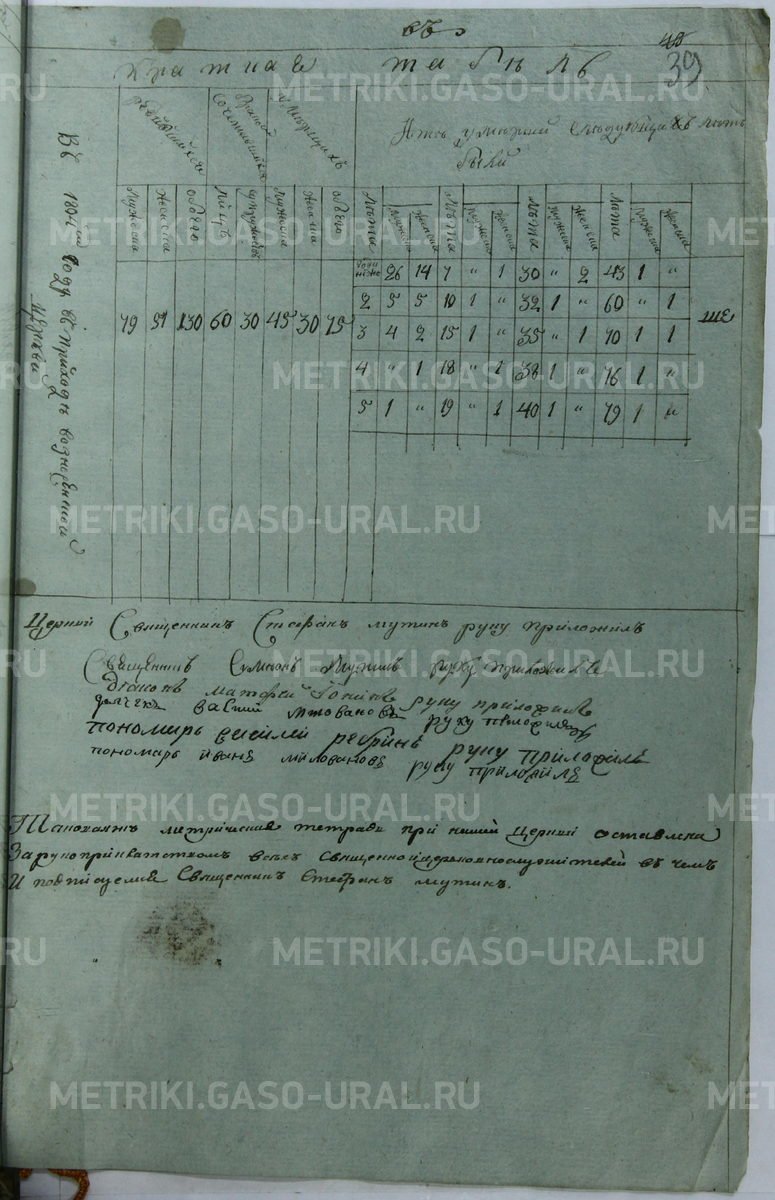 45
39
Краткая табель
Въ 180 году въ приходѣ вознесенской
церкви
родившихся
бракомъ сочетавшихся
умершихъ
Изъ умершихъ слѣдующихъ лѣтъ
были
мужеска женска обоего лицъ супружествъ мужеска женска обоего
Лѣта мужеска женска Лѣта мужеска женска Лѣта мужеска женска Лѣта мужеска женска
79 51 130 60 30 45 30 75
года ниже 26 14 7 " 1 30 " 2 43 1 "
2 5 5 10 1 " 32 1 " 60 " 1
3 4 2 15 1 " 35 " 1 70 1 1
4 " 1 18 " 1 38 1 " 76 1 "
5 1 " 19 " 1 40 1 " 79 1 "
Церкви Священникъ Стефанъ мутинъ руку приложилъ
Священникъ Симеонъ Мутинъ руку приложилъ
Диаконъ матфей руку приложилъ
дьячекъ василий руку приложилъ
пономарь василей ребринъ руку приложилъ
пономарь иванъ миловановъ руку приложилъ
Таковаяж метрическая тетрадь при нашей Церкви оставлена
За рукоприкладствомъ всѣхъ священноицерковнослужителей в чемъ
И подписуемся Священникъ Стефанъ мутинъ.
METRIKI.GASO-URAL.RU